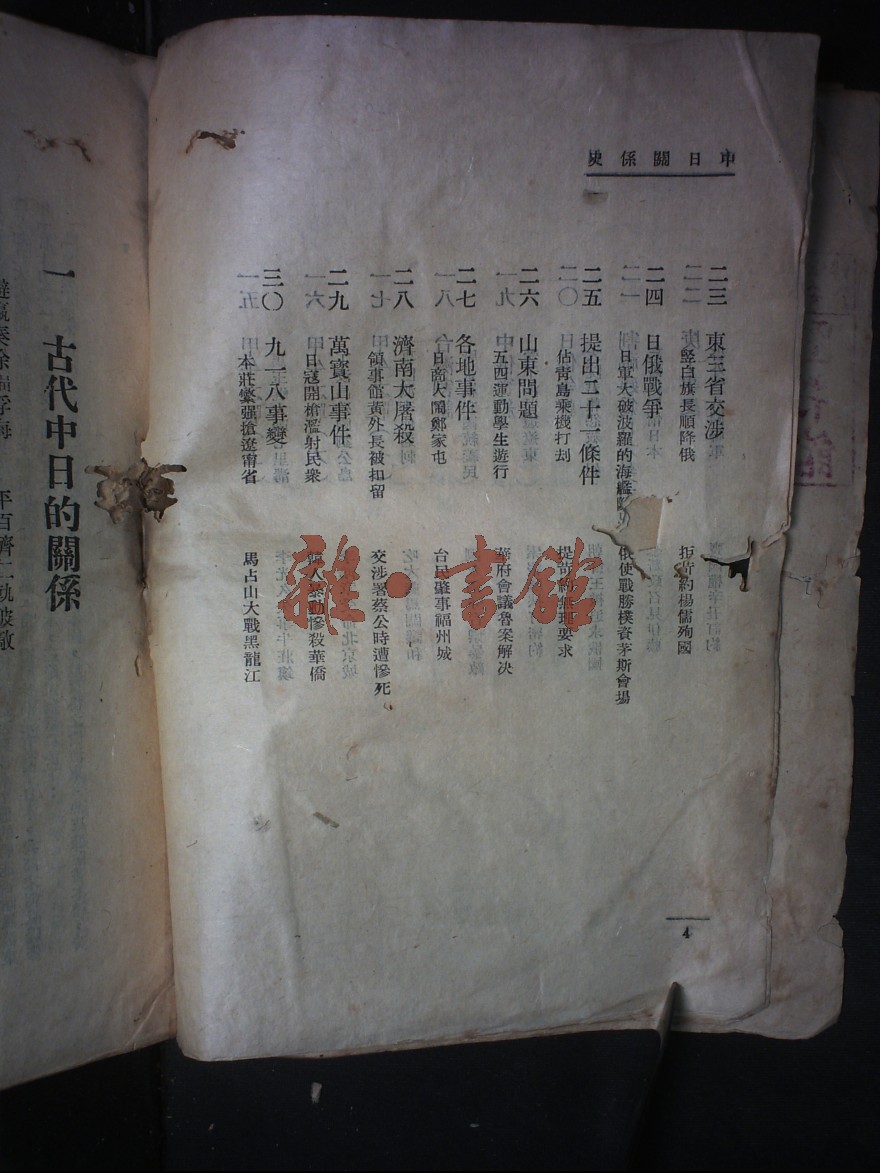 中日關係史
二三 東三省交涉
豎白旗長順降俄 拒苛約楊儒殉國
二四 日俄戰爭
日軍大破波羅的海艦隊 俄使戰勝樸資茅斯會場
二五 提出二十一條件
佔青島乘機打刦 提苛約無理要求
二六 山東問題
五四運動學生遊行 華府會議魯案解决
二七 各地事件
日商大鬧鄭家屯 台民肇事福州城
二八 濟南大屠殺
領事館黃外長被扣留 交涉署蔡公時遭慘死
二九 萬寶山事件
日寇開槍濫射民衆 韓人暴動慘殺華僑
三〇 九一八事變
本莊繁强搶遼甯省 馬占山大戰黑龍江
4
一 古代中日的關係
雜·書館